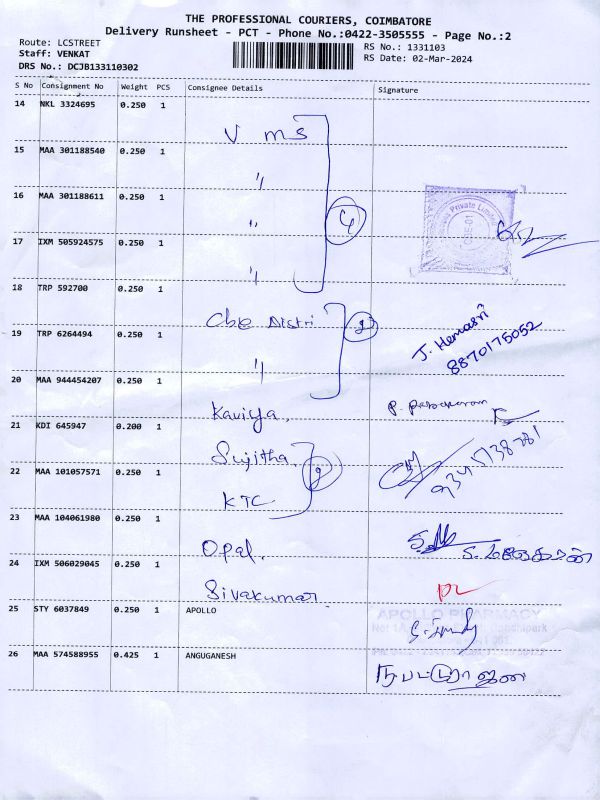 THE PROFESSIONAL COURIERS, COIMBATORE
Delivery Runsheet - PCT - Phone No.:0422-3505555 - Page No.:2
Route: LCSTREET
Staff: VENKAT
DRS No.: DCJB133110302
RS No.: 1331103
RS Date: 02-Mar-2024
S No Consignment No Weight PCS Consignee Details Signature
14 NKL 3324695 0.250 1
V ms
15 MAA 301188540 0.250 1
"
16 MAA 301188611 0.250 1
"
4
Private Limited
CBE-01
17 IXM 505924575 0.250 1
"
18 TRP 592700 0.250 1
Cbe Distri
2
J. Hemasri
8870175052
19 TRP 6264494 0.250 1
"
20 MAA 944454207 0.250 1
Kaviya,
21 KDI 645947 0.200 1
Sujitha,
22 MAA 101057571 0.250 1
KTC
23 MAA 104061980 0.250 1
Opal.
24 IXM 506029045 0.250 1
Sivakumar
25 STY 6037849 0.250 1 APOLLO
APOLLO PHARMACY
26 MAA 574588955 0.425 1 ANGUGANESH